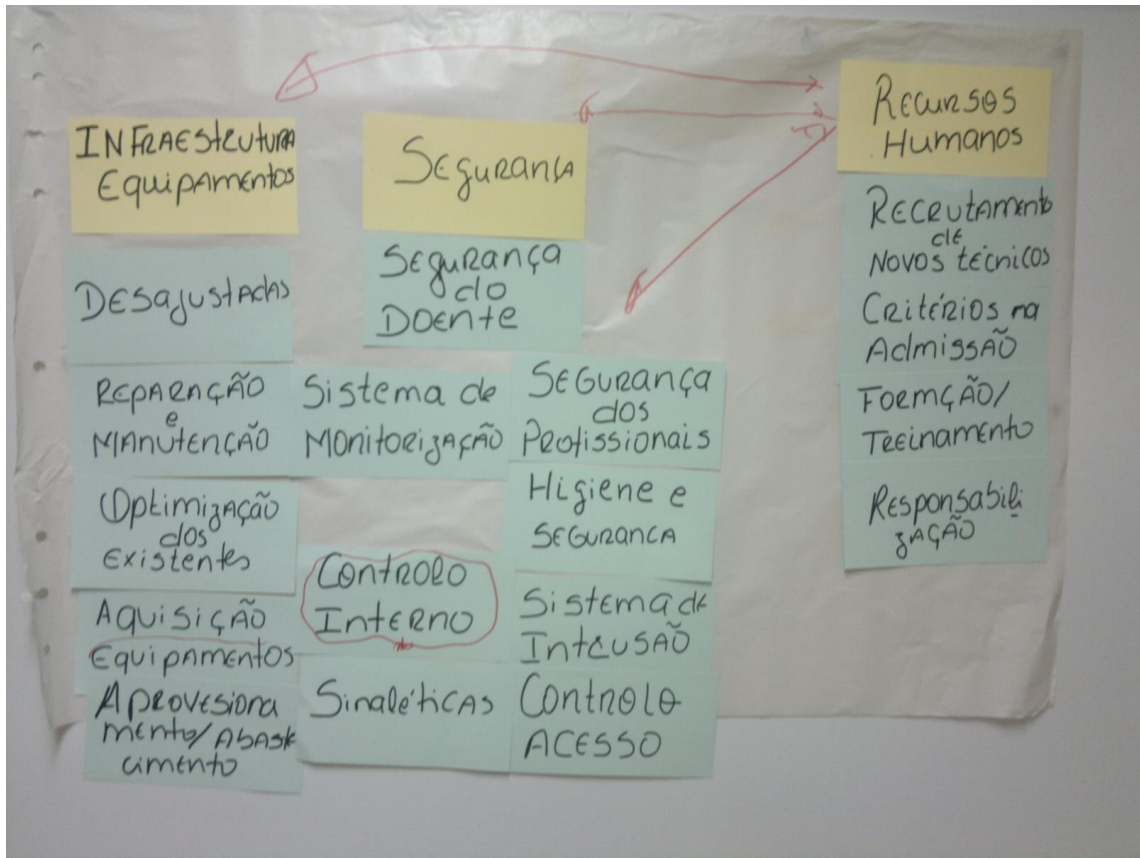 INFRAEStRUtURA
Equipamentos
Desajustadas
Reparação
e
Manutenção
Optimização
dos
Existentes
Aquisição
Equipamentos
Aprovesiona
mento/Abaste
cimento
Segurança
Segurança
do
Doente
Sistema de
Monitorização
Controlo
Interno
Sinaléticas
Segurança
dos
Profissionais
Higiene e
Seguranca
Sistema de
Intrusão
Controlo
Acesso
Recursos
Humanos
Recrutamento
de
Novos técnicos
Critérios na
Admissão
Formção/
Treinamento
Responsabili
zação